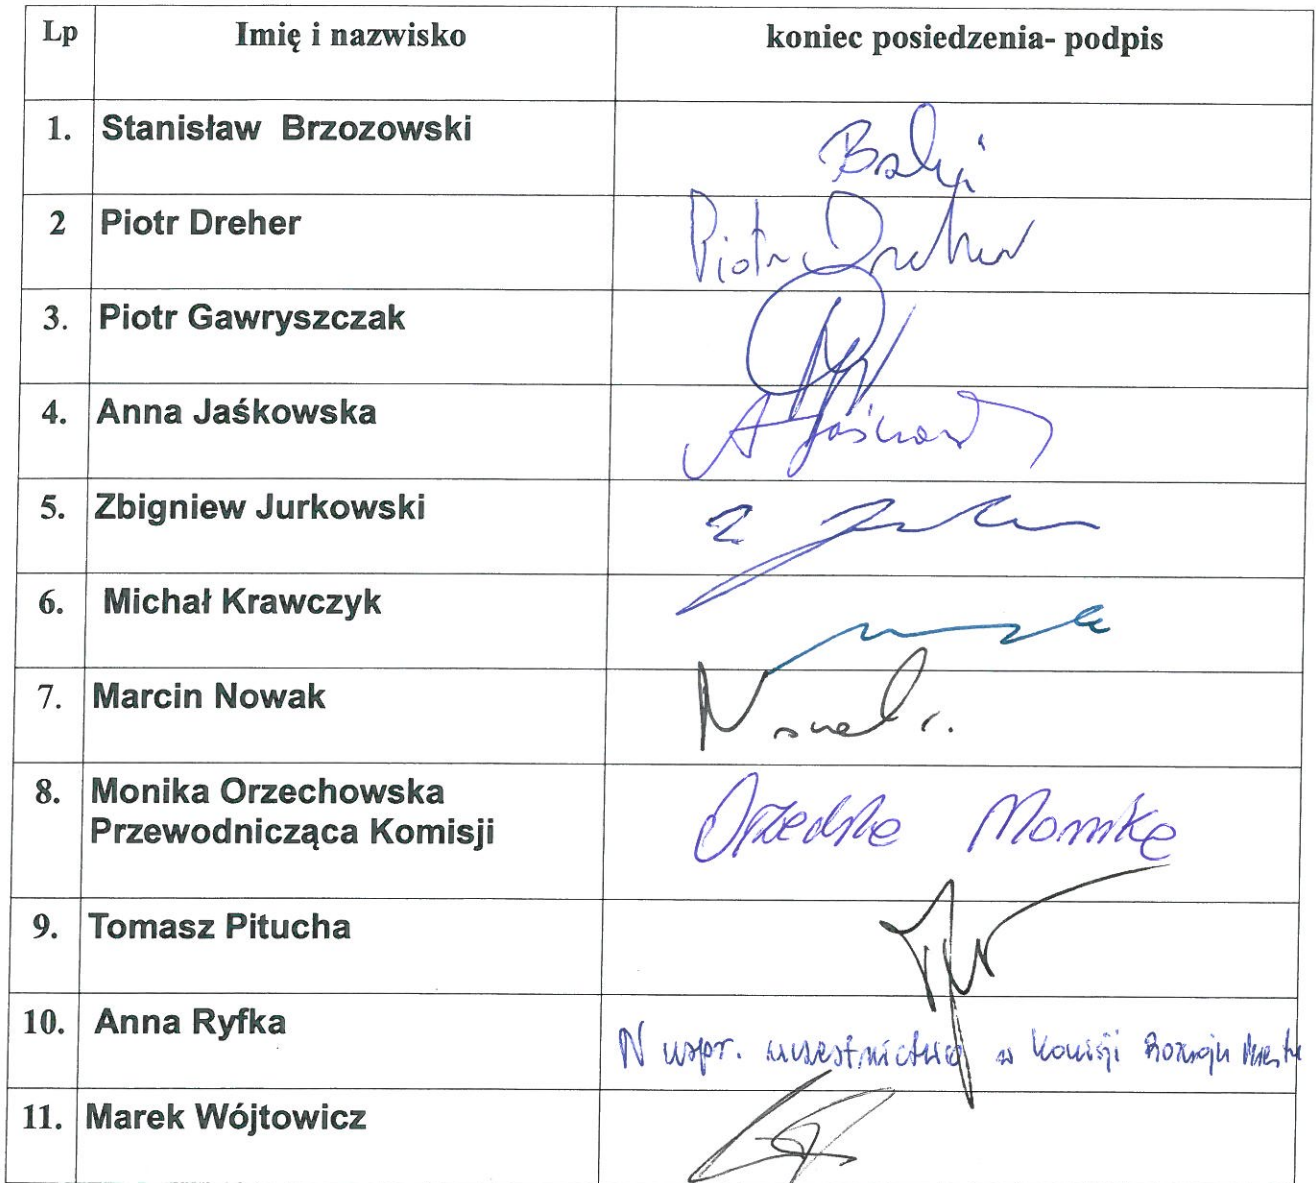 Lp Imię i nazwisko koniec posiedzenia- podpis
1. Stanisław Brzozowski
2 Piotr Dreher Piotr Dreher
3. Piotr Gawryszczak
4. Anna Jaśkowska
5. Zbigniew Jurkowski
6. Michał Krawczyk
7. Marcin Nowak
8. Monika Orzechowska
Przewodnicząca Komisji
9. Tomasz Pitucha
10. Anna Ryfka N uspr. uczestnictwo w Komisji Rozwoju Miasta
11. Marek Wójtowicz